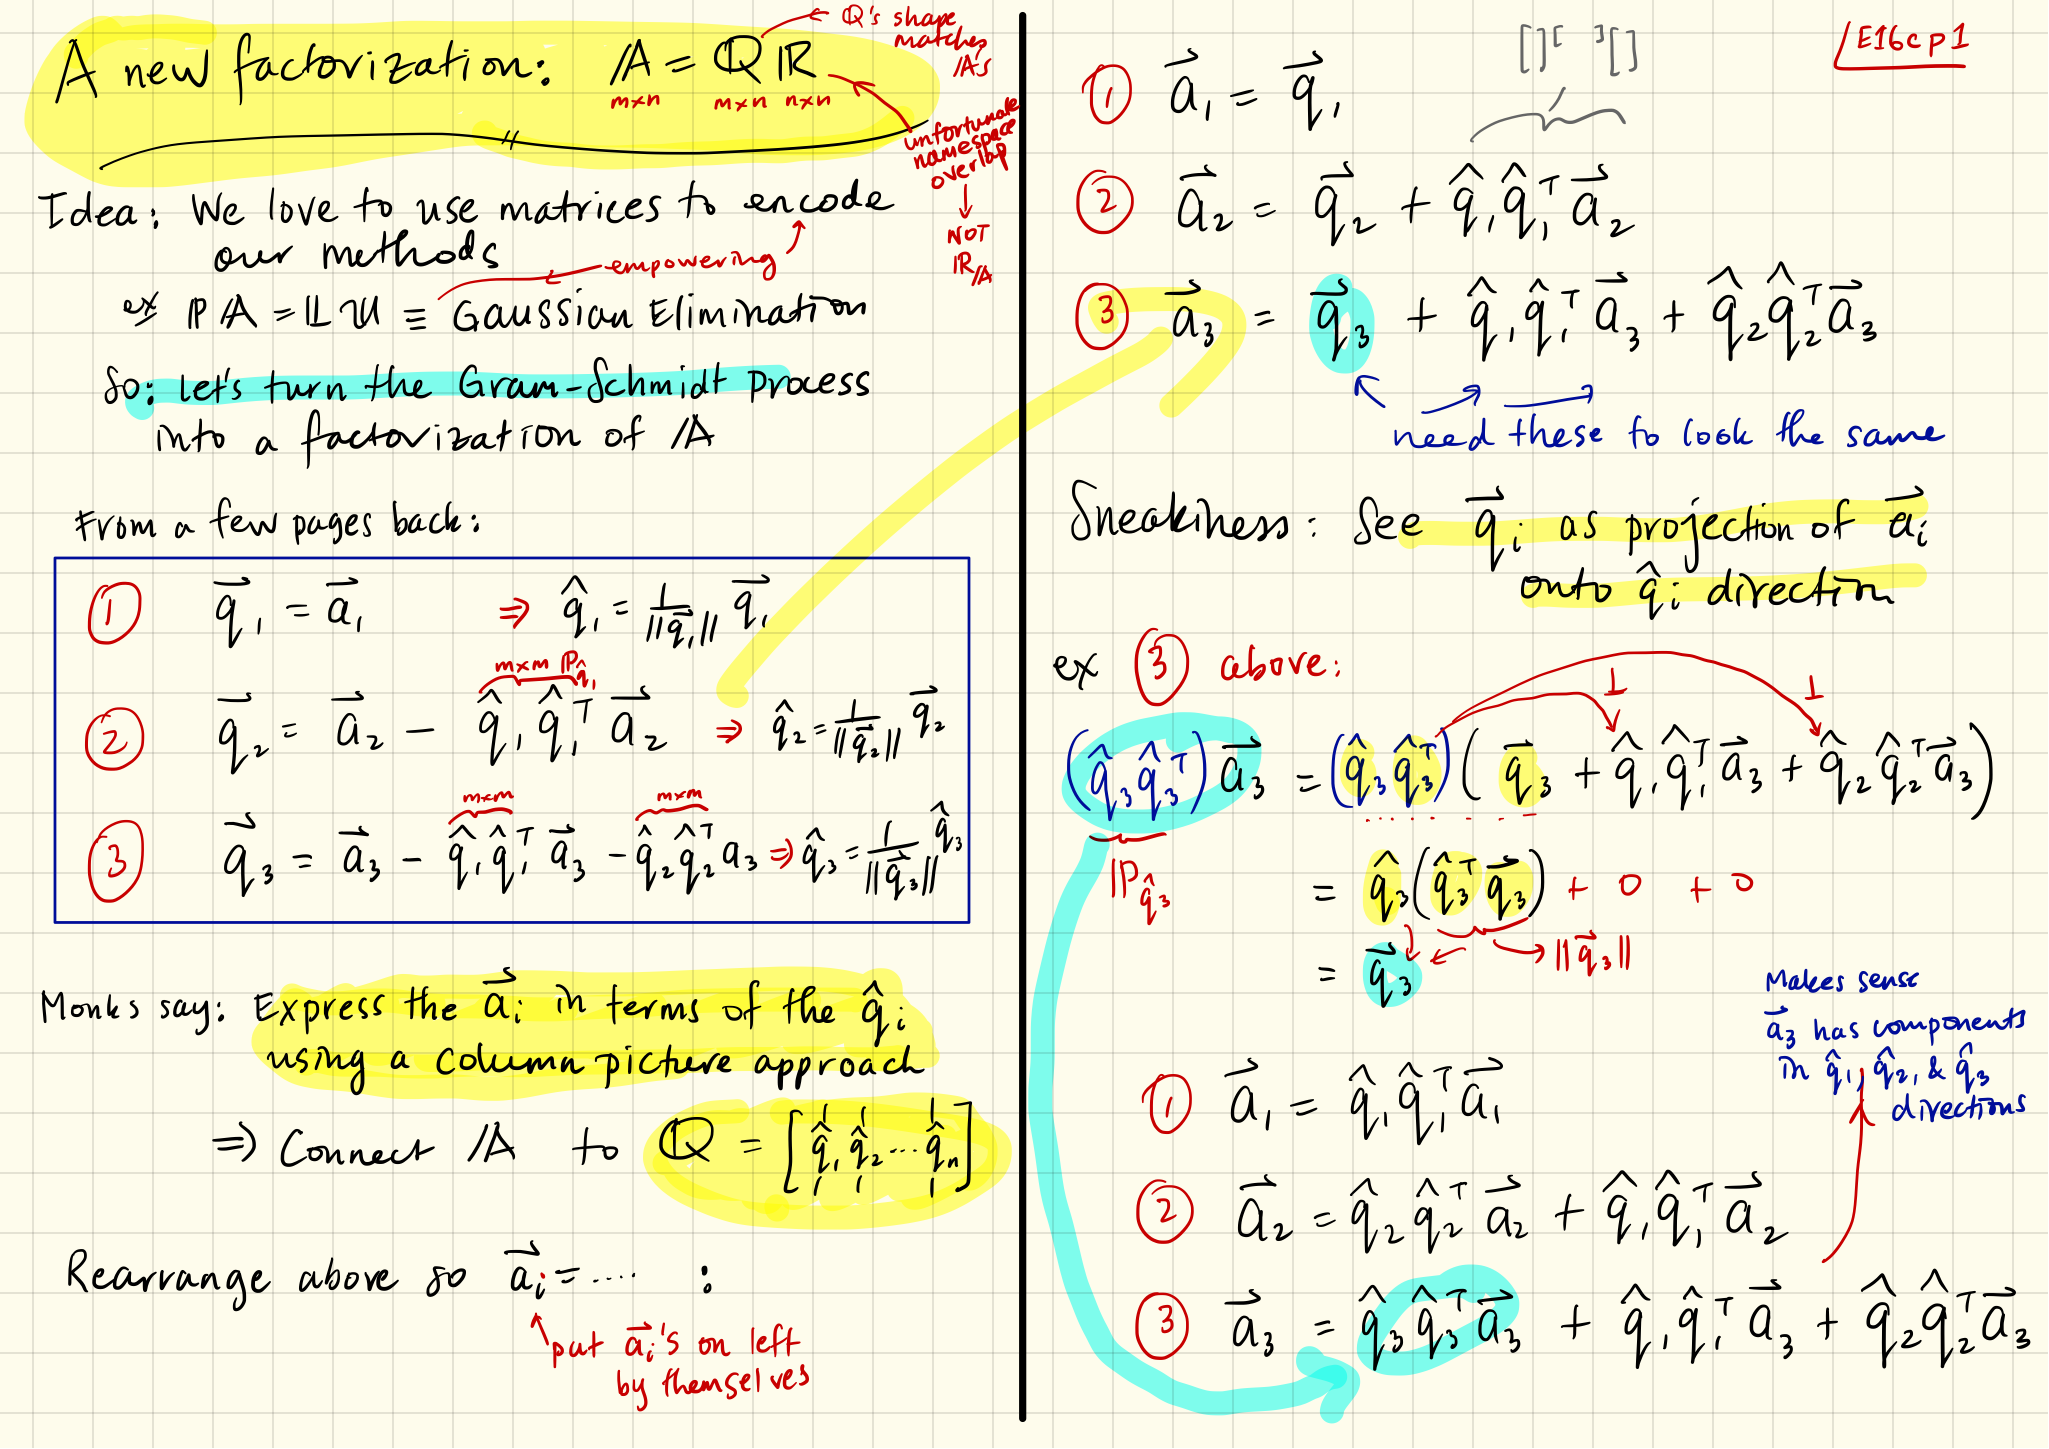 A new factorization: 𝔸 = ℚ ℝ
m×n m×n n×n
← ℚ's shape
matches
𝔸's
unfortunate
namespace
overlap
↓
NOT
ℝ/𝔸
Idea: We love to use matrices to encode
our methods
empowering
ex ℙ𝔸 = 𝕃𝕌 ≡ Gaussian Elimination
So: let's turn the Gram-Schmidt Process
into a factorization of 𝔸
From a few pages back:
① q⃗₁ = a⃗₁ ⇒ q̂₁ = 1/||q⃗₁|| q⃗₁
m×m ℙq̂₁
② q⃗₂ = a⃗₂ − q̂₁q̂₁ᵀ a⃗₂ ⇒ q̂₂ = 1/||q⃗₂|| q⃗₂
m×m m×m
③ q⃗₃ = a⃗₃ − q̂₁q̂₁ᵀ a⃗₃ − q̂₂q̂₂ᵀ a₃ ⇒ q̂₃ = 1/||q⃗₃|| q̂₃
Monks say: Express the a⃗ᵢ in terms of the q̂ᵢ
using a column picture approach
⇒ Connect 𝔸 to ℚ = [q̂₁ q̂₂ ... q̂ₙ]
Rearrange above so a⃗ᵢ = ..... :
put a⃗ᵢ's on left
by themselves
E16cp1
[ ] [ ] [ ]
① a⃗₁ = q⃗₁
② a⃗₂ = q⃗₂ + q̂₁q̂₁ᵀ a⃗₂
③ a⃗₃ = q⃗₃ + q̂₁q̂₁ᵀ a⃗₃ + q̂₂q̂₂ᵀ a⃗₃
need these to look the same
Sneakiness: See q⃗ᵢ as projection of a⃗ᵢ
onto q̂ᵢ direction
ex ③ above:
⊥ ⊥
(q̂₃q̂₃ᵀ) a⃗₃ = (q̂₃q̂₃ᵀ)(q⃗₃ + q̂₁q̂₁ᵀ a⃗₃ + q̂₂q̂₂ᵀ a⃗₃)
ℙq̂₃
= q̂₃(q̂₃ᵀ q⃗₃) + 0 + 0
→ ||q⃗₃||
= q⃗₃
Makes sense
a⃗₃ has components
in q̂₁, q̂₂, & q̂₃
directions
① a⃗₁ = q̂₁q̂₁ᵀ a⃗₁
② a⃗₂ = q̂₂q̂₂ᵀ a⃗₂ + q̂₁q̂₁ᵀ a⃗₂
③ a⃗₃ = q̂₃q̂₃ᵀ a⃗₃ + q̂₁q̂₁ᵀ a⃗₃ + q̂₂q̂₂ᵀ a⃗₃